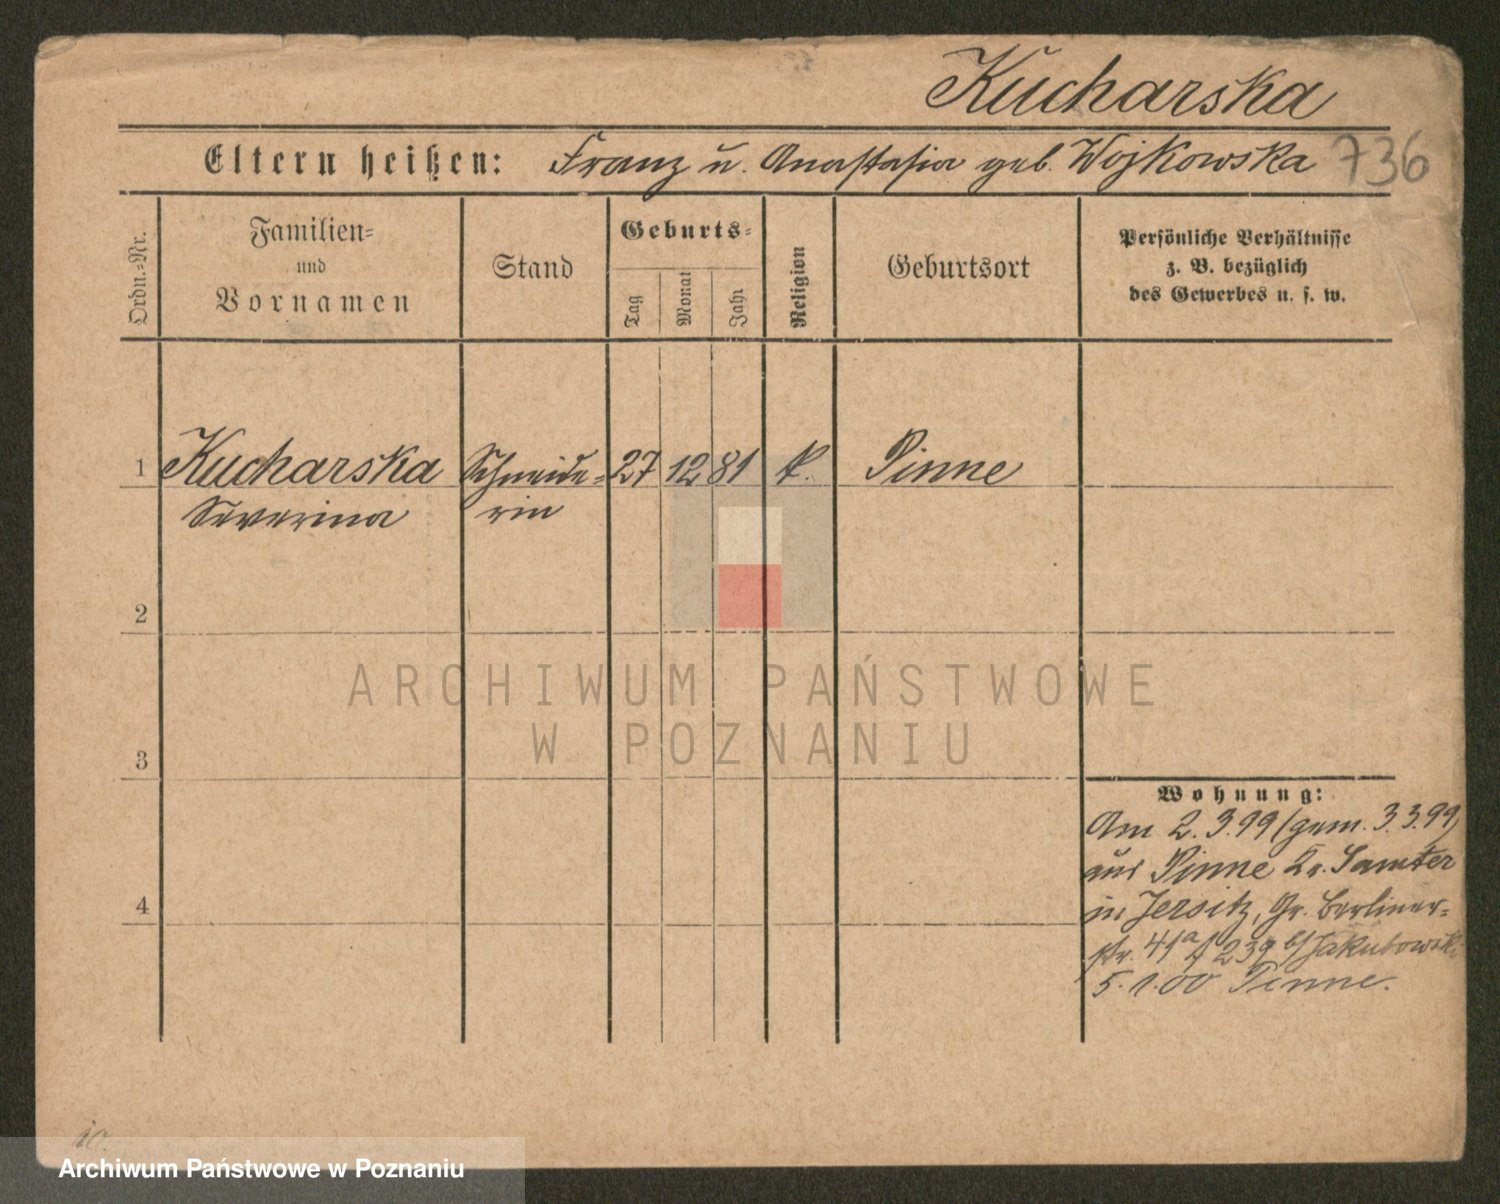 Kucharska
Eltern heißen: Franz u. Anastasia geb. Wojkowska 736
Ordn.=Nr.
Familien=
und
Vornamen
Stand
Geburts=
Tag
Monat
Jahr
Religion
Geburtsort
Persönliche Verhältnisse
z. B. bezüglich
des Gewerbes u. s. w.
1 Kucharska Schneide= 27 12 81 k. Pinne
Severina rin
2
ARCHIWUM PAŃSTWOWE
W POZNANIU
3
Wohnung:
Am 2.3.99 (gem. 3.3.99)
aus Pinne Kr. Samter
in Jersitz, Gr. Berliner=
str. 41a 239 b/ Jakubowski
4
5.1.00 Pinne.
10
Archiwum Państwowe w Poznaniu